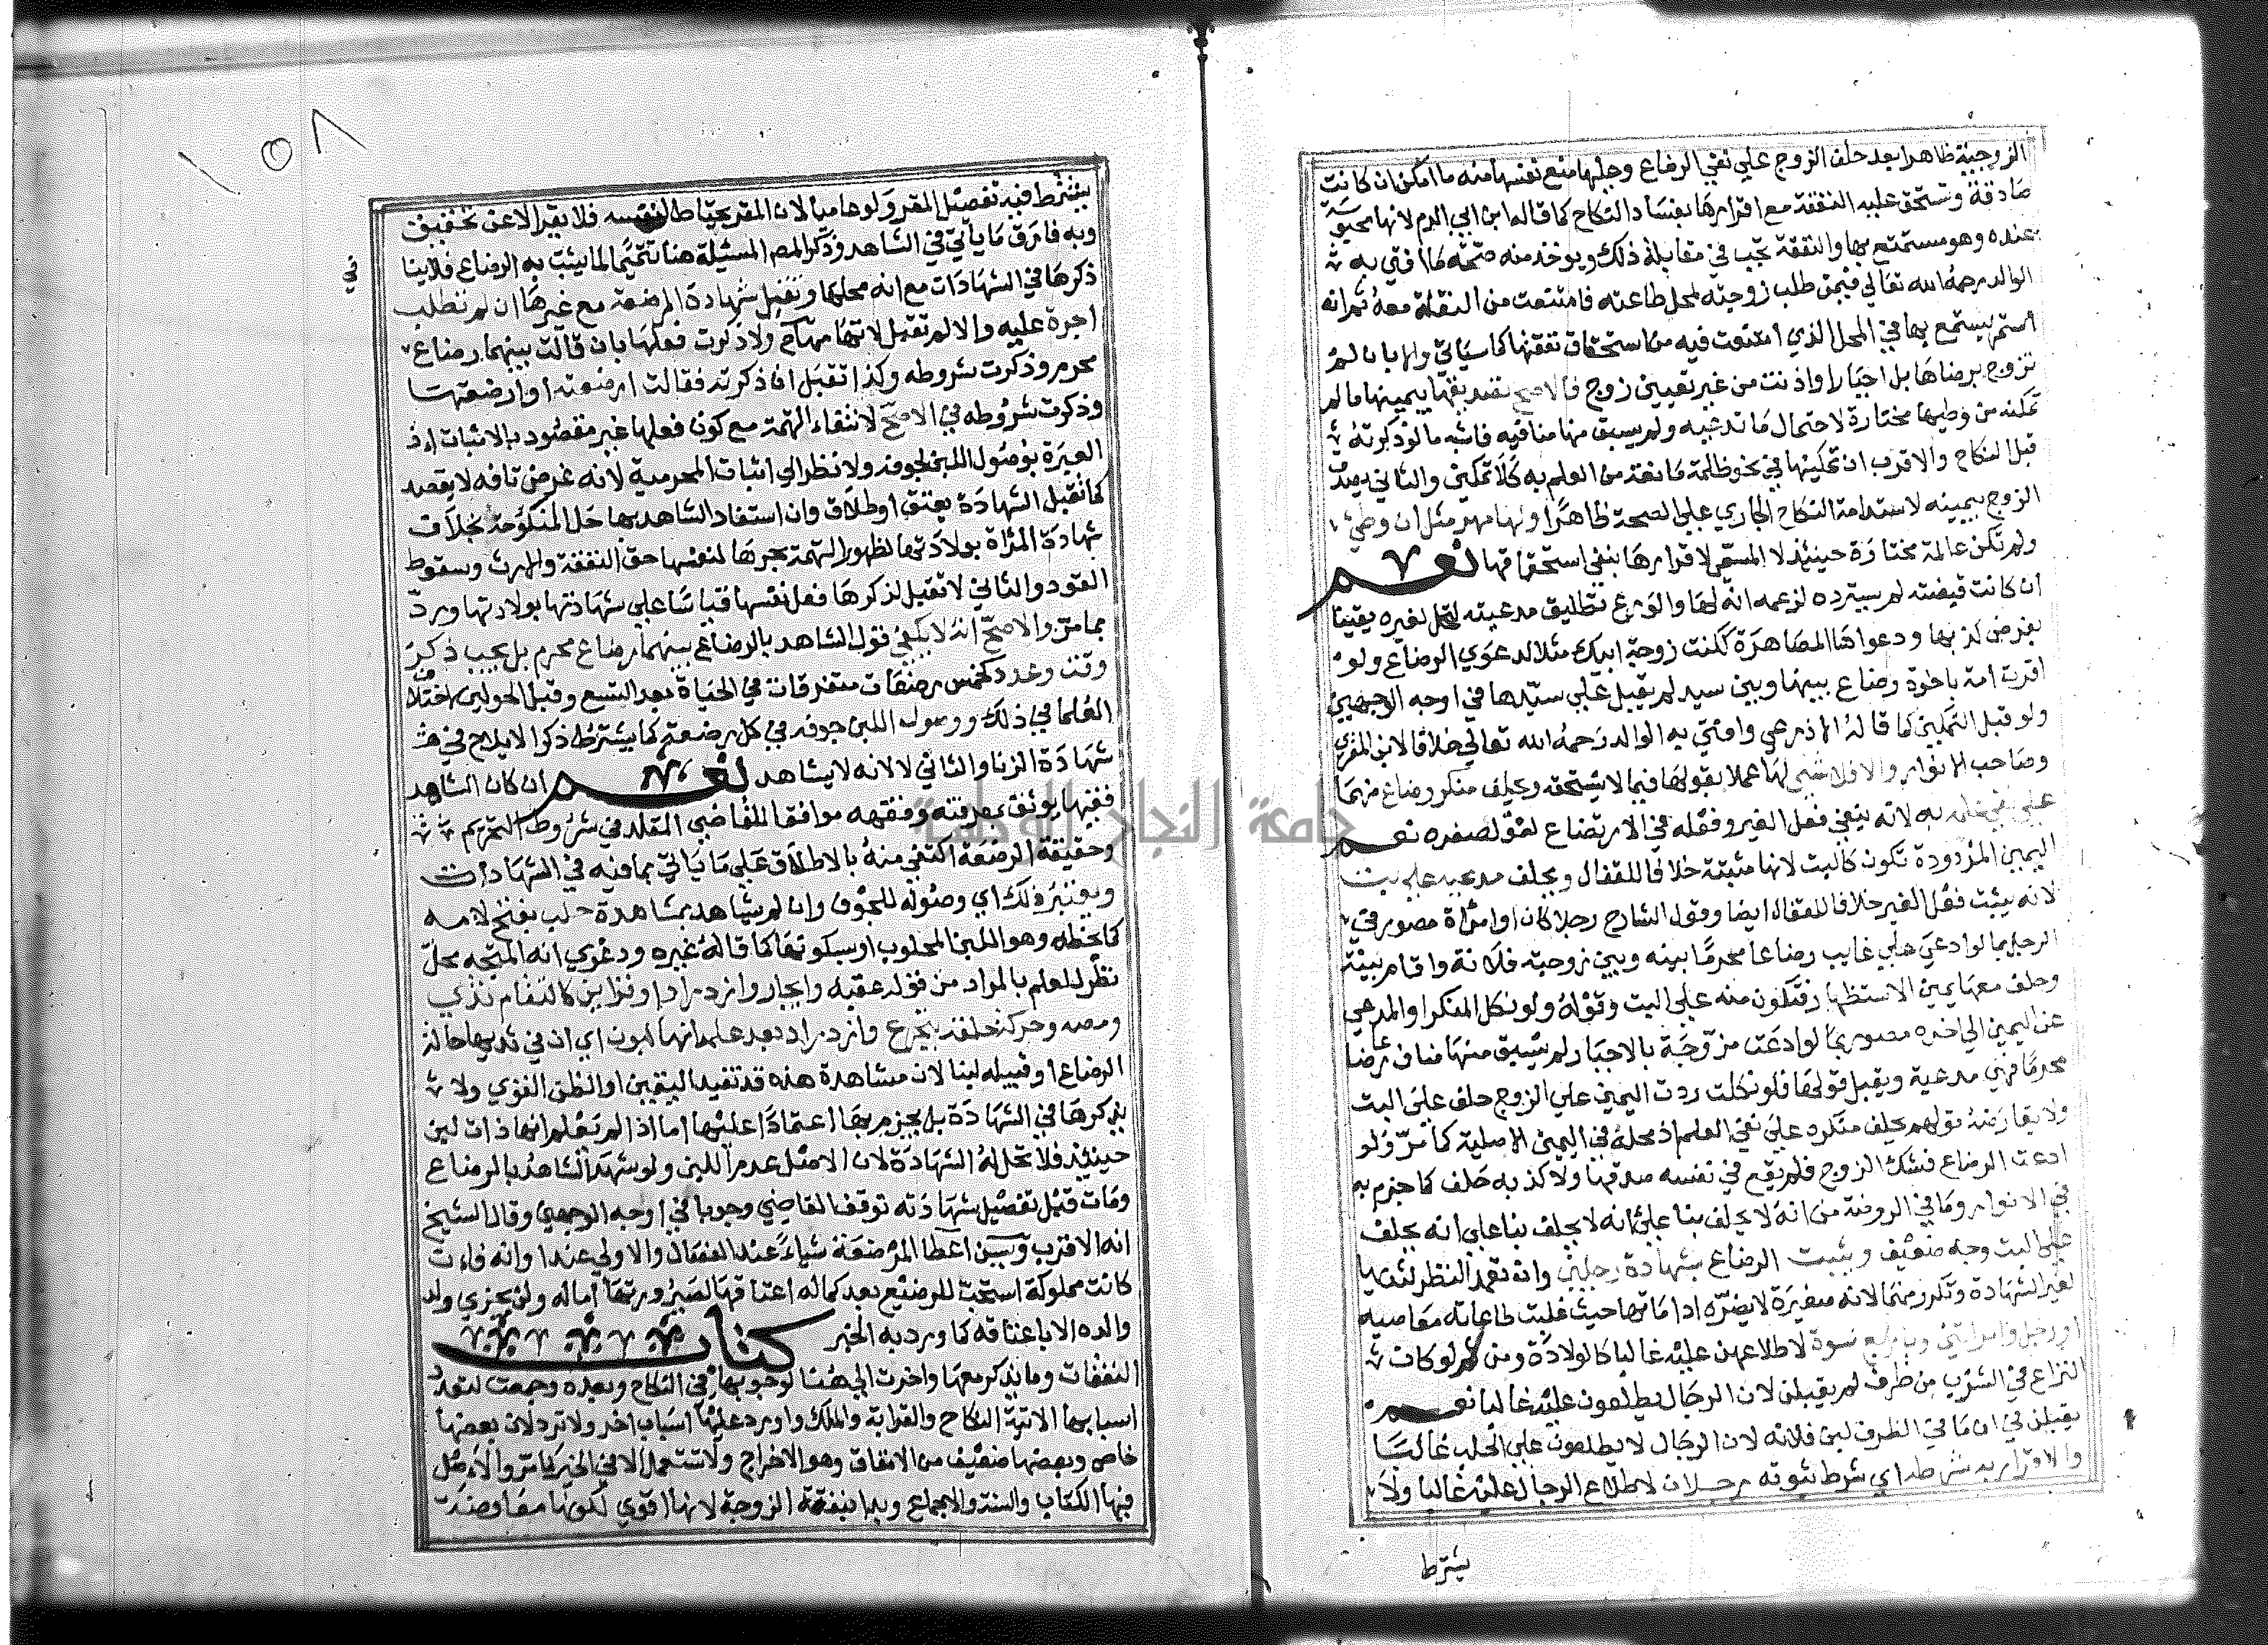 الزوجية ظاهرا بعد حلف الزوج علي نفي الرضاع وعليها منع نفسها منه ما امكن ان كانت
صادقة وتستحق عليه النفقة مع اقرارها بفساد النكاح كما قاله ابن ابي الدم لانها محبوسة
عنده وهو مستمتع بها والنفقة تجب في مقابلة ذلك ويوخذ منه صحة ما افتي به
الوالد رحمه الله تعالي فيمن طلب زوجته لمحل طاعته فامتنعت من النقلة معه ثم انه
استمر يستمتع بها في المحل الذي امتنعت فيه من استحقاق نفقتها كما سياتي والا بان لم
تزوج برضاها بل اجبارا او اذنت من غير تعيين زوج فالاصح تصديقها بيمينها ما لم
تمكنه من وطيها مختارة لاحتمال ما تدعيه ولم يسبق منها منافيه فاشبه ما لو ذكرته
قبل النكاح والاقرب ان تمكينها في نحو ظلمة مانعة من العلم به كلا تمكين والثاني يصدق
الزوج بيمينه لاستدامة النكاح الجاري علي الصحة ظاهرا ولها مهر مثل ان وطي
ولم تكن عالمة مختارة حينئذ لا المسمي لاقرارها بنفي استحقاقها نعم
ان كانت قبضته لم يسترده لزعمه انه لها والورع تطليق مدعيته لتحل لغيره يقينا
بفرض كذبها ودعواها المصاهرة ككنت زوجة ابيك مثلا كدعوي الرضاع ولو
اقرت امة باخوة رضاع بينها وبين سيد لم يقبل علي سيدها في اوجه الوجهين
ولو قبل التمكين كما قاله الاذرعي وافتي به الوالد رحمه الله تعالي خلافا لابن المقري
وصاحب الانوار والا فلا شي لها عملا بقولها فيما لا يستحقه ويحلف منكر رضاع منهما
علي نفي علمه به لانه ينفي فعل الغير وفعله في الارتضاع لغو لصغره نعم
اليمين المردودة تكون كالبت لانها مثبتة خلافا للقفال ويحلف مدعيه علي بت
لانه يثبت فعل الغير خلافا للقفال ايضا وقول الشارح رجلا كان او امراة مصور في
الرجل بما لو ادعي علي غايب رضاعا محرما بينه وبين زوجته فلانة واقام بينة
وحلف معها يمين الاستظهار فتكون منه علي البت وقوله ولو نكل المنكر او المدعي
عن اليمين الي اخره مصور بما لو ادعت مزوجة بالاجبار لم يسبق منها مناف رضاعا
محرما فهي مدعية ويقبل قولها فلو نكلت ردت اليمين علي الزوج حلف علي البت
ولا يعارضه قولهم يحلف منكره علي نفي العلم اذ محله في اليمين الاصلية كما مر ولو
ادعت الرضاع فشك الزوج فلم يقع في نفسه صدقها ولا كذبه حلف كما جزم به
في الانوار وما في الروضة من انه لا يحلف بنا علي انه لا يحلف بنا علي انه يحلف
علي البت وجه ضعيف ويثبت الرضاع بشهادة رجلين وان تعمد النظر لثديها
لغير الشهادة وتكرر منهما لانه صغيرة لا يضره ادمانها حيث غلبت طاعاته معاصيه
او رجل وامراتين وباربع نسوة لاطلاعهن عليه غالبا كالولادة ومن ثم لو كان
النزاع في الشرب من ظرف لم يقبلن لان الرجال يطلعون عليه غالبا نعم
يقبلن في ان ما في الظرف لبن فلانة لان الرجال لا يطلعون علي الحلب غالبا
والاقرار به شرطه اي شرط ثبوته رجلان لاطلاع الرجال عليه غالبا ولا
يشترط
١٥٨
يشترط فيه تفصيل المقر ولو عاميا لان المقر يحتاط لنفسه فلا يقر الا عن تحقيق
وبه فارق ما ياتي في الشاهد وذكر المص المسئلة هنا تتميما لما يثبت به الرضاع فلا ينافي
ذكرها في الشهادات مع انه محلها وتقبل شهادة المرضعة مع غيرها ان لم تطلب
اجرة عليه والا لم تقبل لانها متهمة ولا ذكرت فعلها بان قالت بينهما رضاع
محرم وذكرت شروطه وكذا تقبل ان ذكرته فقالت ارضعته او ارضعتها
وذكرت شروطه في الاصح لانتفاء التهمة مع كون فعلها غير مقصود بالاثبات اذ
العبرة بوصول اللبن لجوفه ولا نظر الي اثبات المحرمية لانه غرض تافه لا يقصد
كما تقبل الشهادة بعتق او طلاق وان استفاد الشاهد بها حل المنكوحة بخلاف
شهادة المراة بولادتها لظهور التهمة بجرها لنفسها حق النفقة والارث وسقوط
القود والثاني لا تقبل لذكرها فعل نفسها قياسا علي شهادتها بولادتها ورد
بما مر والاصح انه لا يكفي قول الشاهد بالرضاع بينهما رضاع محرم بل يجب ذكر
وقت وعدد كخمس رضعات متفرقات في الحياة بعد التسع وقبل الحولين لاختلاف
العلما في ذلك ووصول اللبن جوفه في كل رضعة كما يشترط ذكر الايلاج في
شهادة الزنا والثاني لا لانه لا يشاهد نعم ان كان الشاهد
فقيها يوثق بمعرفته وفقهه موافقا للقاضي المقلد في شروط التحريم
وحقيقة الرضعة اكتفي منه بالاطلاق علي ما ياتي بما فيه في الشهادات
ويعتبر ذلك اي وصوله للجوف وان لم يشاهد بمشاهدة حلب بفتح لامه
كما بخطه وهو اللبن المحلوب او سكونها كما قاله غيره ودعوي انه المتجه محل
نظر للعلم بالمراد من قوله عقبه وايجار وازدراد او قراين كالتقام ثدي
ومصه وحركة حلقه بتجرع وازدراد بعد علمه انها لبون اي ان في ثديها حالة
الرضاع او قبيله لبنا لان مشاهدة هذه قد تفيد اليقين او الظن القوي ولا
يذكرها في الشهادة بل يجزم بها اعتمادا عليها اما اذا لم تعلم انها ذات لبن
حينئذ فلا تحل له الشهادة لان الاصل عدم اللبن ولو شهد الشاهد بالرضاع
ومات قبل تفصيل شهادته توقف القاضي وجوبا في اوجه الوجهين وقال الشيخ
انه الاقرب ويسن اعطا المرضعة شياء عند الفصال والاولي عبدا وانه فان
كانت مملوكة استحب للرضيع بعد كماله اعتاقها لصيرورتها اما له ولن يجزي ولد
والده الا باعتاقه كما ورد به الخبر كتاب
النفقات وما يذكر معها واخرت الي هنا لوجوبها في النكاح وبعده وجمعت لتعدد
اسبابها الاتية النكاح والقرابة والملك واورد عليها اسباب اخر ولا ترد لان بعضها
خاص وبعضها ضعيف من الانفاق وهو الاخراج ولا تستعمل الا في الخير كما مر والاصل
فيها الكتاب والسنة والاجماع وبدا بنفقة الزوجة لانها اقوي لكونها معاوضة
في
جامعة النجاح الوطنية